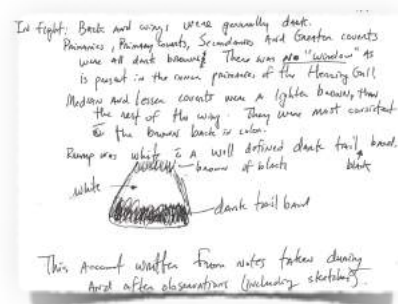 In flight: Back and wings were generally dark.
Primaries, Primary Coverts, Secondaries And Greater coverts
were all dark brown. There was no "window" as
is present in the inner primaries of the Herring Gull.
Median And Lesser coverts were a lighter brown, than
the rest of the wing. They were most consistent
the brown back in color.
Rump was white a well defined dark tail band.
brown or black
black
white
dark tail band
This Account written from notes taken during
And after observations (including sketches).